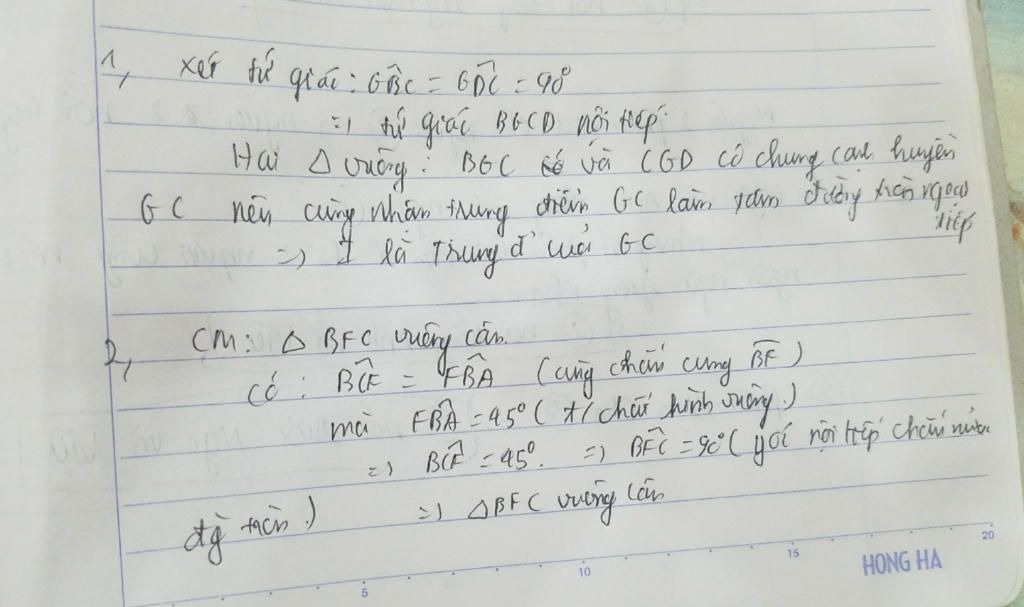 1, Xét tứ giác: GB̂C = GD̂C = 90°
=> tứ giác BGCD nội tiếp.
Hai △ vuông: BGC và CGD có chung cạnh huyền
GC nên cùng nhận trung điểm GC làm tâm đường tròn ngoại
tiếp
=> I là trung đ' của GC
2, CM: △ BFC vuông cân.
Có: BĈF = FB̂A (cùng chắn cung BF)
mà FB̂A = 45° (t/chất hình vuông.)
=> BĈF = 45°. => BF̂C = 90° (góc nội tiếp chắn nửa
đg tròn.) => △BFC vuông cân
5 10 15 20
HONG HA